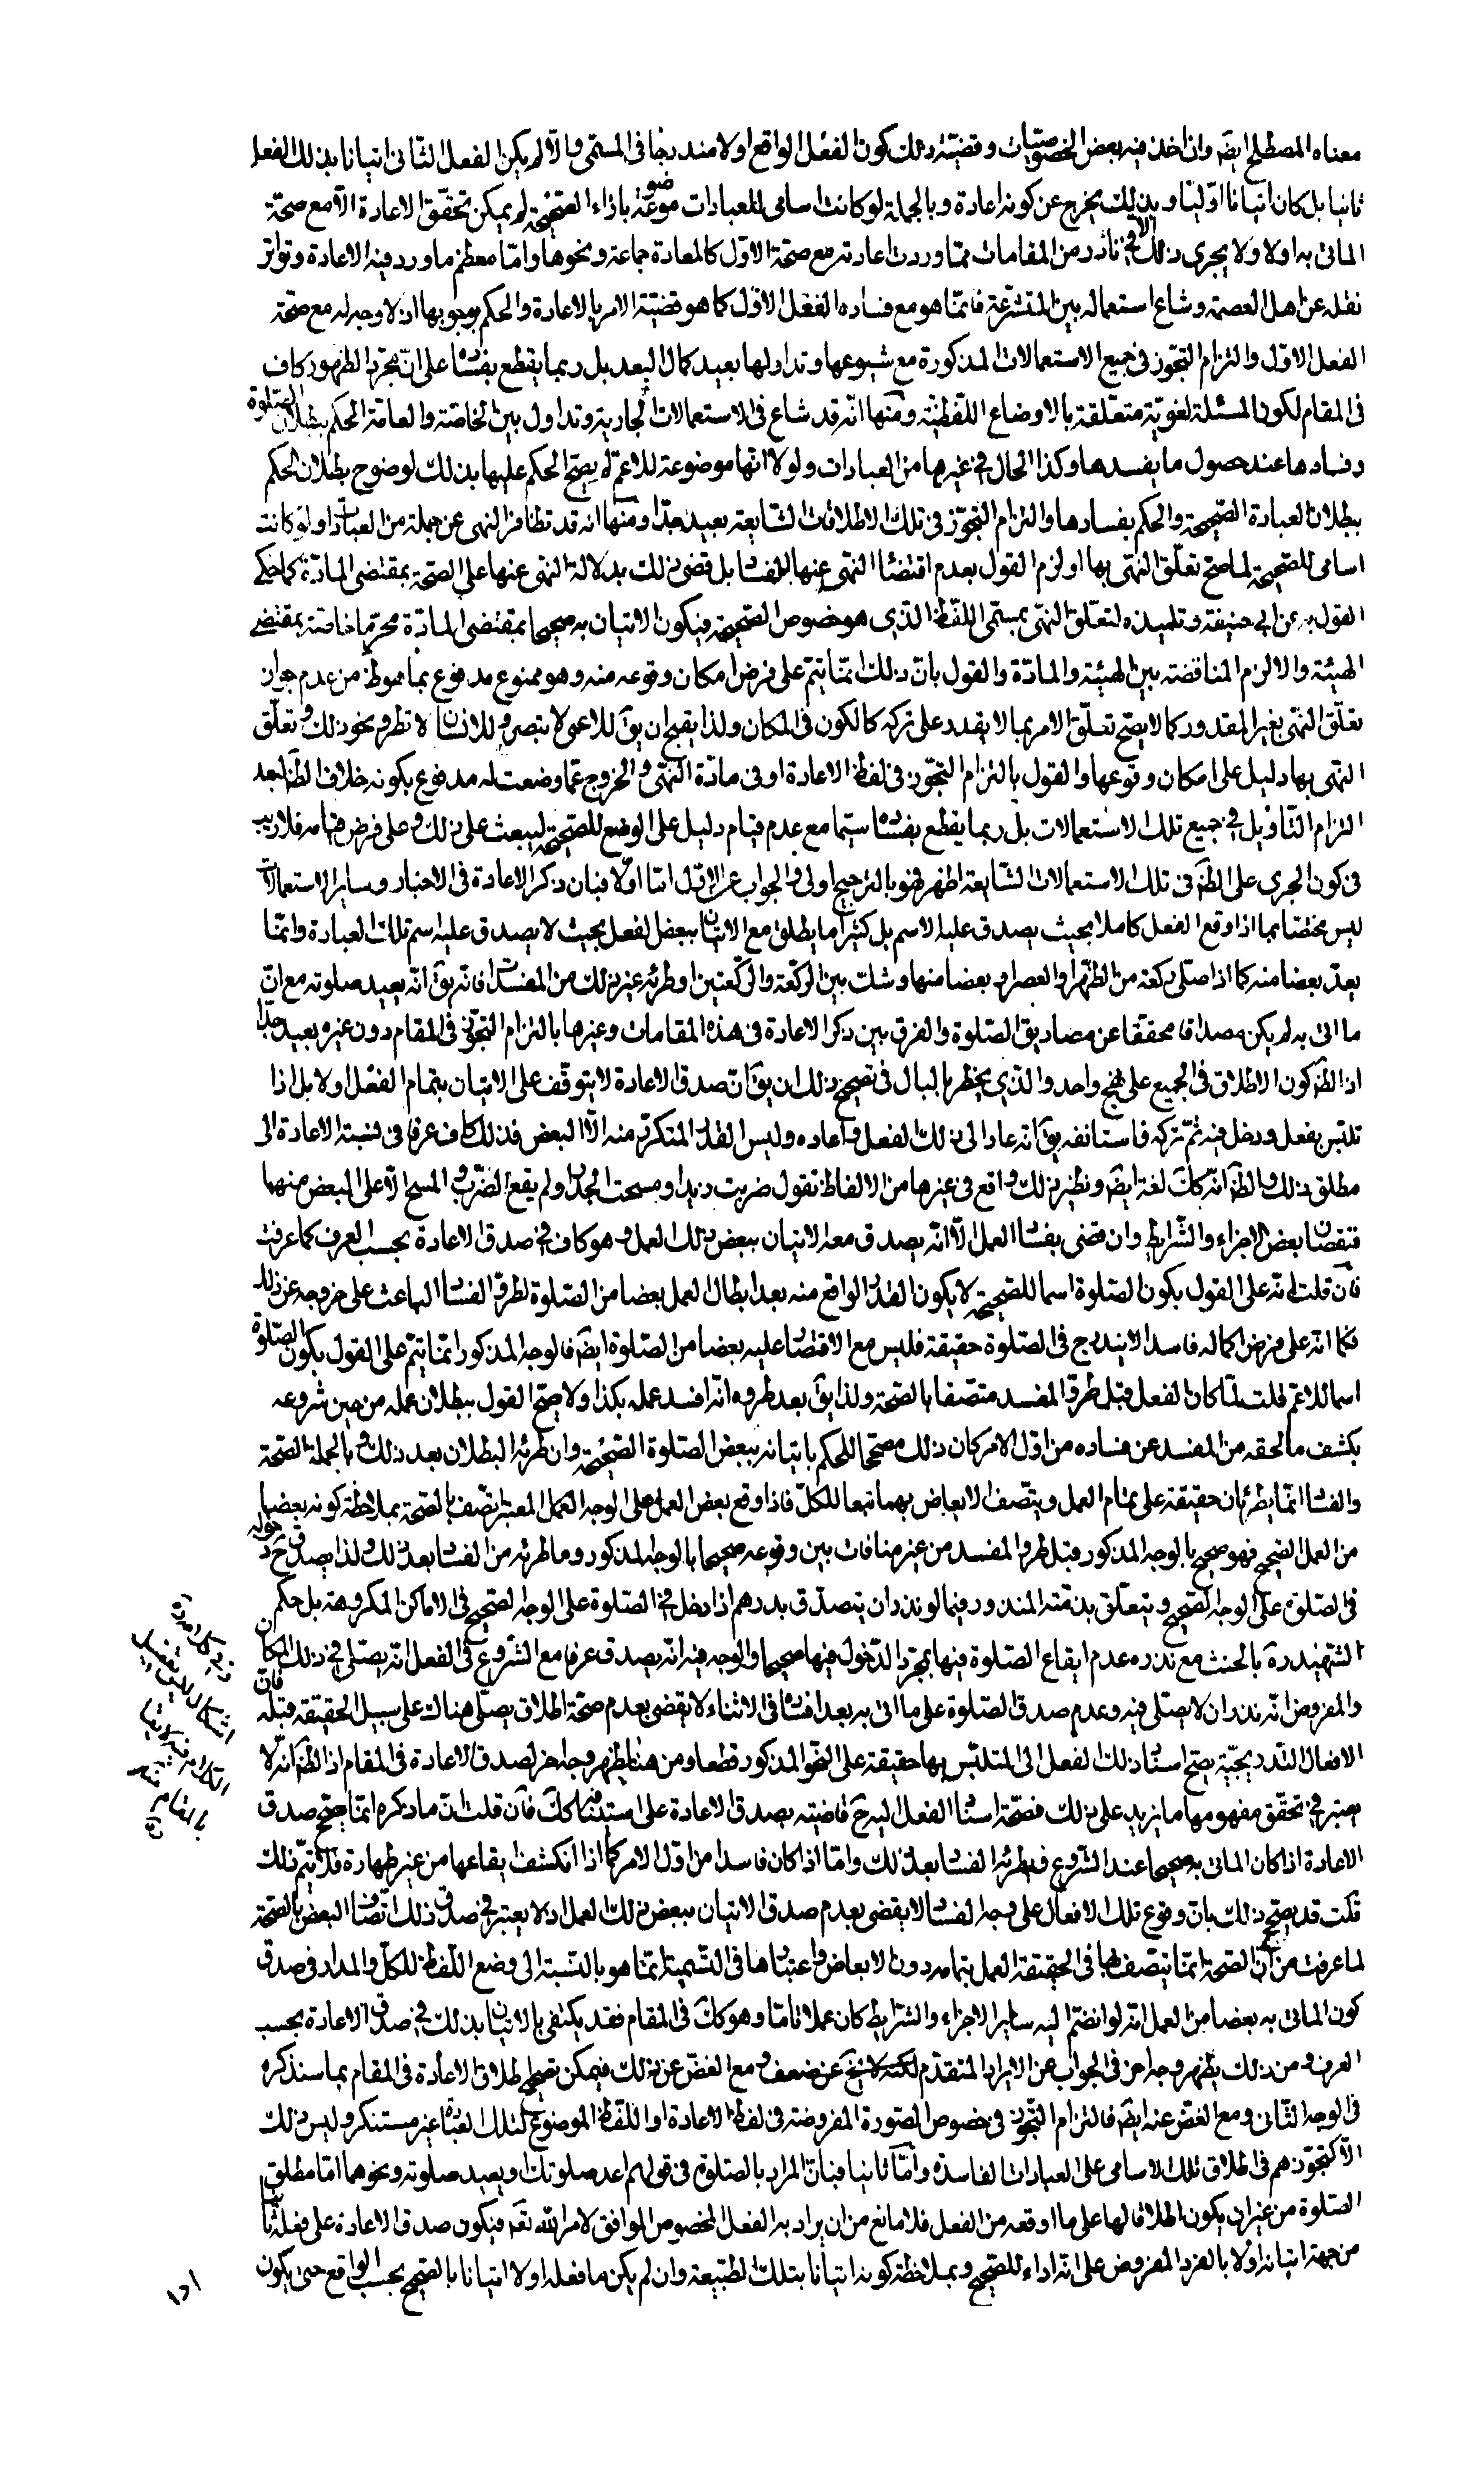 معناه المصطلح ايضَ وان اخذ فيه بعض الخصوصيّات و قضيّة ذلك كون الفعل الواقع اولا مندرجا فى المسمى والّا لم يكن الفعل الثانى اتيانا بذلك الفعل
ثانيا بل كان اتيانا اوّليّا و بذلك يخرج عن كونه اعادة و بالجملة لو كانت اسامى للعبادات موضوعة بازاء الصّحيحة لم يمكن تحقّق الاعادة الّا مع صحّة
الماتى به اولا ولا يجرى ذلك الا فى نادر من المقامات ممّا وردت اعادته مع صحّة الاوّل كالمعادة جماعة و نحوها وامّا معظم ما ورد فيه الاعادة و تواتر
نقله عن اهل العصمة و شاع استعماله بين المتشرّعة فانّما هو مع فساد الفعل الاوّل كما هو قضيّة الامر بالاعادة والحكم بوجوبها اذ لا وجه له مع صحّة
الفعل الاوّل والتزام التجوّز فى جميع الاستعمالات المذكورة مع شيوعها و تداولها بعيد كمال البعد بل ربما يقطع بفساده على انّ مجرّد الظهور كاف
فى المقام لكون المسئلة لغويّة متعلّقة بالاوضاع اللّفظيّة ومنها انّه قد شاع فى الاستعمالات الجارية و تداول بين الخاصّة والعامّة الحكم ببطلان الصّلوة
و فسادها عند حصول ما يفسدها وكذا الحال فى غيرها من العبادات ولولا انّها موضوعة للاعمّ لم يصحّ الحكم عليها بذلك لوضوح بطلان الحكم
ببطلان العبادة الصّحيحة والحكم بفسادها والتزام التجوّز فى تلك الاطلاقات الشّايعة بعيد جدّا ومنها انه قد تظافر النهى عن جملة من العبادات ولو كانت
اسامى للصّحيحة لما صحّ تعلّق النّهى بها او لزم القول بعدم اقتضاء النّهى عنها للفساد بل قضى ذلك بدلالة النهى عنها على الصّحة بمقتضى المادّة كما حكى
القول به عن ابى حنيفة و تلميذه لتعلّق النّهى بمسمّى اللّفظ الذى هو خصوص الصّحيحة فيكون الاتيان به صحيحا بمقتضى المادّة محرّما خاصّة بمقتضى
الهيئة والا لزم المناقضة بين الهيئة والمادّة والقول بانّ ذلك انّما يتمّ على فرض امكان وقوعه منه وهو ممنوع مدفوع بما هو ظَ من عدم جواز
تعلّق النّهى بغير المقدور كما لا يصحّ تعلّق الامر بما لا يقدر على تركه كالكون فى المكان ولذا يقبح ان يقَ للاعمى لا تبصر و للانسان لا تطر و نحو ذلك و تعلّق
النّهى بها دليل على امكان وقوعها والقول بالتزام التجوّز فى لفظ الاعادة او فى مادّة النّهى والخروج عمّا وضعت له مدفوع بكونه خلاف الظَ لبعد
التزام التّاويل فى جميع تلك الاستعمالات بل ربما يقطع بفساده سيّما مع عدم قيام دليل على الوضع للصّحيحة ليبعث على ذلك و على فرض قيامه فلا ريب
فى كون الجرى على الظَ فى تلك الاستعمالات الشّايعة اظهر فهو بالترجيح اولى والجواب عن الاوّل امّا اولا فبان ذكر الاعادة فى الاخبار وساير الاستعمالات
ليس مختصّا بما اذا وقع الفعل كاملا بحيث يصدق عليه الاسم بل كثيرا ما يطلق مع الاتيان ببعض الفعل بحيث لا يصدق عليه اسم تلك العبادة وانّما
يعدّ بعضا منه كما اذا صلّى ركعة من الظّهر او العصر او بعضا منها و شك بين الركعة والركعتين او طرئه غير ذلك من المفسدات فانّه يقَ انّه يعيد صلوته مع انّ
ما اتى به لم يكن مصداقا محققا عن مصاديق الصّلوة والفرق بين ذكر الاعادة فى هذه المقامات و غيرها بالتزام التجوّز فى المقام دون غيره بعيد جدّا
اذ الظَ كون الاطلاق فى الجميع على نهج واحد والذى يخطر بالبال فى تصحيح ذلك ان يقَ انّ صدق الاعادة لا يتوقّف على الاتيان بتمام الفعل اولا بل اذا
تلبّس بفعل و دخل فيه ثمّ تركه فاستانفه يقَ انّه عاد الى ذلك الفعل و اعاده وليس القدر المتكرّر منه الّا البعض فذلك كاف عرفا فى نسبة الاعادة الى
مطلق ذلك والظَ انّه كَكَ لغة ايضَ و نظير ذلك واقع فى غيرها من الالفاظ تقول ضربت زيدا و مسحت الجدار ولم يقع الضّرب و المسح الّا على البعض منهما
فنقصان بعض الاجزاء والشّرايط وان قضى بفساد العمل الّا انّه يصدق معه الاتيان ببعض ذلك العمل و هو كاف فى صدق الاعادة بحسب العرف كما عرفت
فان قلت انّه على القول بكون الصّلوة اسما للصّحيحة لا يكون القدر الواقع منه بعد ابطال العمل بعضا من الصّلوة لطروّ الفساد الباعث على خروجه عن ذلك
فكما انّه على فرض اكماله فاسدا لا يندرج فى الصّلوة حقيقة فليس مع الاقتصار عليه بعضا من الصّلوة ايضَ فالوجه المذكور انّما يتمّ على القول بكون الصّلوة
اسما للاعمّ قلت لمّا كان الفعل قبل طروّ المفسد متّصفا بالصّحة ولذا يقَ بعد طروه انّه افسد عمله بكذا ولا يصحّ القول ببطلان عمله من حين شروعه
بكشف ما لحقه من المفسد عن فساده من اوّل الامر كان ذلك مصحّحا للحكم باتيانه ببعض الصّلوة الصّحيحة وان طرئه البطلان بعد ذلك و بالجملة الصّحة
والفساد انّما يطرئان حقيقة على تمام العمل و يتّصف الابعاض بهما تبعا للكلّ فاذا وقع بعض العمل على الوجه المعتبر يتّصف بالصّحة بملاحظة كونه بعضا
من العمل الصّحيح فهو صحيح بالوجه المذكور قبل طروّ المفسد من غير منافات بين وقوعه صحيحا بالوجه المذكور و ما طرئه من الفساد بعد ذلك و لذا يصدق حَ دخوله
فى الصّلوة على الوجه الصّحيح و يتعلّق بذمّته المنذور فيما لو نذر ان يتصدّق بدرهم اذا دخل فى الصّلوة على الوجه الصّحيح فى الاماكن المكروهة بل حكم
الشّهيد ره بالحنث مع نذره عدم ايقاع الصّلوة فيها بمجرّد الدّخول فيها صحيحا والوجه فيه انّه يصدق عرفا مع الشّروع فى الفعل انّه يصلّى فى ذلك المكان
والمفروض انّه نذر ان لا يصلّى فيه و عدم صدق الصّلوة على ما اتى به بعد افساده فى الاثناء لا يقضى بعدم صحّة اطلاق يصلّى هناك على سبيل الحقيقة قبله فانّ
الافعال التّدريجيّة يصحّ اسناد ذلك الفعل الى المتلبّس بها حقيقة على النّحو المذكور قطعا و من هنا يظهر وجه اخر لصدق الاعادة فى المقام اذ الظَ انّه لا
يعتبر فى تحقّق مفهومها ما يزيد على ذلك فصحّة اسناد الفعل اليه حَ قاضية بصدق الاعادة على استينافها كَكَ فان قلت انّ ما ذكره انّما يصحّح صدق
الاعادة اذا كان الماتى به صحيحا عند الشّروع فيه فيطرئه الفساد بعد ذلك وامّا اذا كان فاسدا من اوّل الامر كما اذا انكشف ايقاعها من غير طهارة فلا يتمّ ذلك
قلت قد يصحّح ذلك بانّ وقوع تلك الافعال على وجه الفساد لا يقضى بعدم صدق الاتيان ببعض ذلك العمل اذ لا يعتبر فى صدق ذلك اتّصاف البعض بالصّحة
لما عرفت من انّ الصّحة انّما يتّصف بها فى الحقيقة العمل بتمامه دون الابعاض و اعتبارها فى التّسمية انّما هو بالنّسبة الى وضع اللّفظ للكلّ والمدار فى صدق
كون الماتى به بعضا من العمل انّه لو انضمّ اليه ساير الاجزاء والشّرايط كان عملا تامّا و هو كَكَ فى المقام فقد يكتفى بالاتيان بذلك فى صدق الاعادة بحسب
العرف و من ذلك يظهر وجه اخر فى الجواب عن الايراد المتقدّم لكنّه لا يخَ عن ضعف و مع الغضّ عن ذلك فيمكن تصحيح اطلاق الاعادة فى المقام بما سنذكره
فى الوجه الثّانى و مع الغضّ عنه ايضَ فالتزام التّجوّز فى خصوص الصّورة المفروضة فى لفظ الاعادة او اللّفظ الموضوع لتلك العبادة غير مستنكر و ليس ذلك
الّا كتجوّزهم فى اطلاق تلك الاسامى على العبادات الفاسدة و امّا ثانيا فبانّ المراد بالصّلوة فى قولهم اعد صلوتك او يعيد صلوته و نحوهما امّا مطلق
الصّلوة من غير ان يكون اطلاقا لها على ما اوقعه من الفعل فلا مانع من ان يراد به الفعل المخصوص الموافق لامر اللّه تعَ فيكون صدق الاعادة على فعله ثانيا
من جهة اتيانه اولا بالفرد المفروض على انّه اداء للصّحيح و بملاحظة كونه اتيانا بتلك الطّبيعة وان لم يكن ما فعله اولا اتيانا بالصّحيح بحسب الواقع حتى يكون